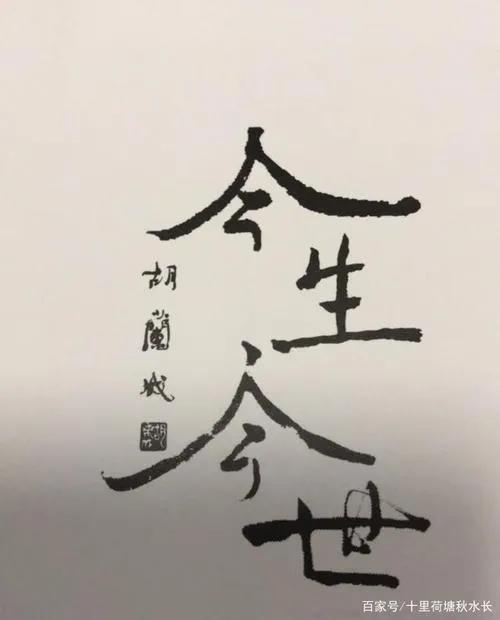 今生今世
胡蘭成
百家号/十里荷塘秋水长